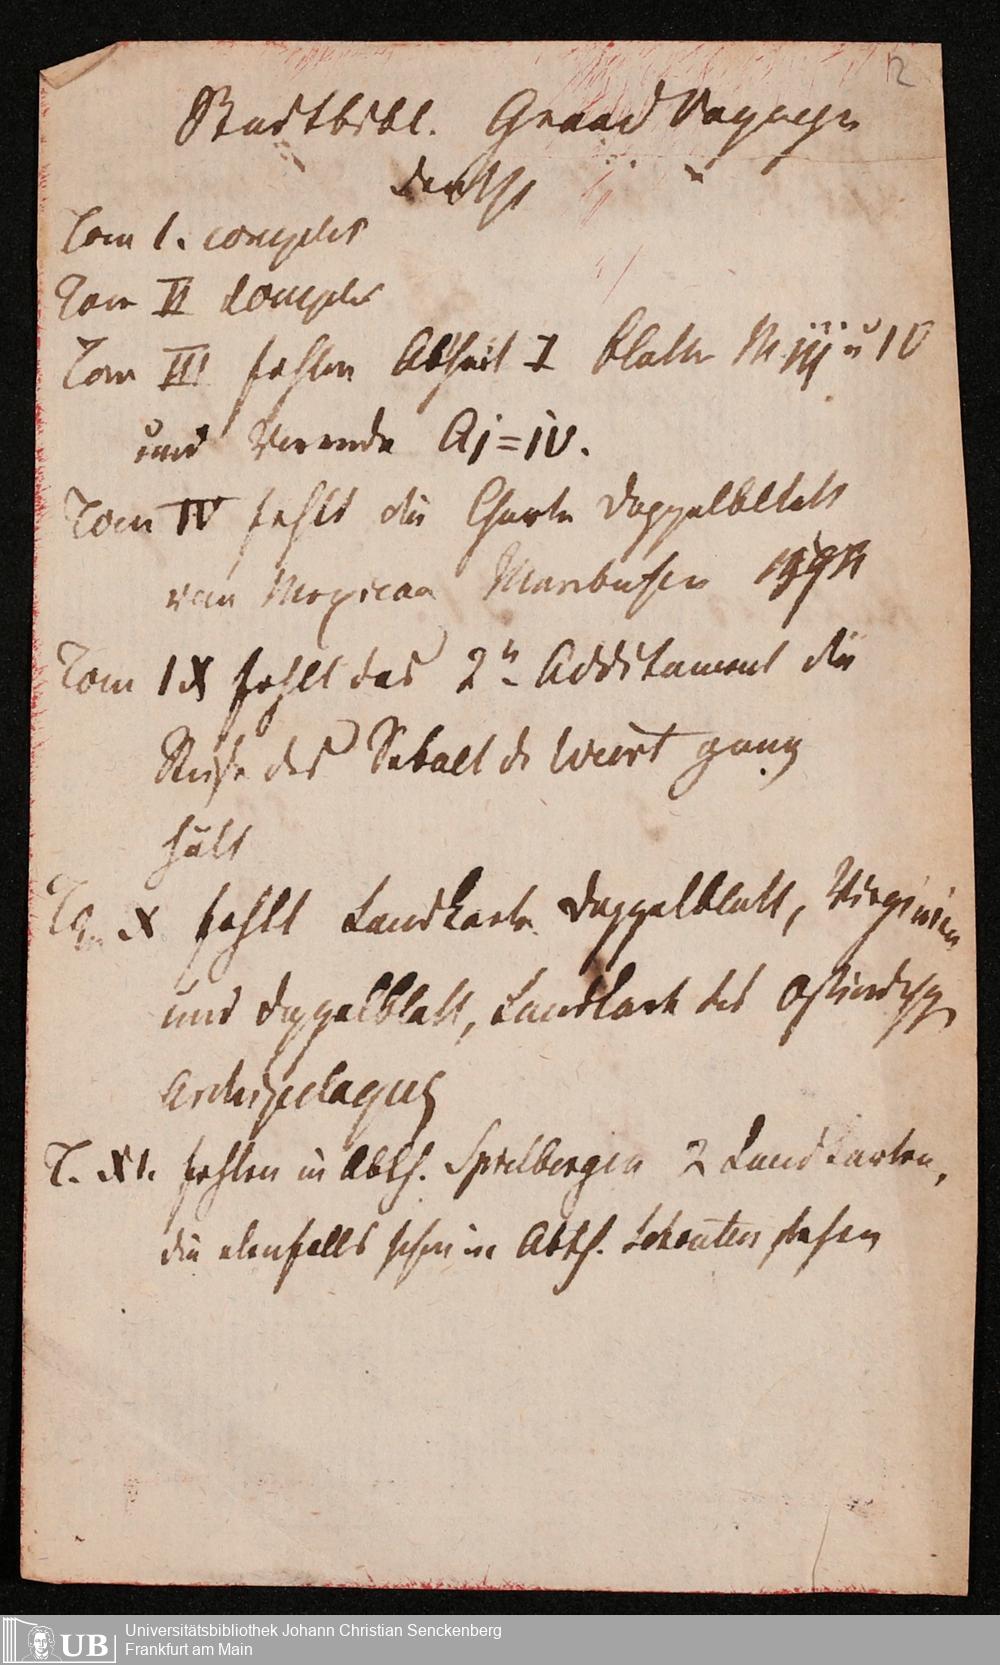 12
Stadtbibl. Grand Voyages
deutsch
Tom I. complet
Tom II complet
Tom III fehlen Abtheil I Blatt M iij u IV
und Vorrede Aj=iv.
Tom IV fehlt die Charte Doppelblatt
von Mexican Meerbusen
Tom IX fehlt das 2te Additament die
Reise des Sebalt de Weert ganz
hält
T. X fehlt Landkarte Doppelblatt, Virginien
und Doppelblatt, Landkart des Ostindisch
Archipelagus
T. XI. fehlen in Abth. Spielbergen 2 Landkarten,
die ebenfalls schon in Abth. Schouten stehen
UB Universitätsbibliothek Johann Christian Senckenberg
Frankfurt am Main